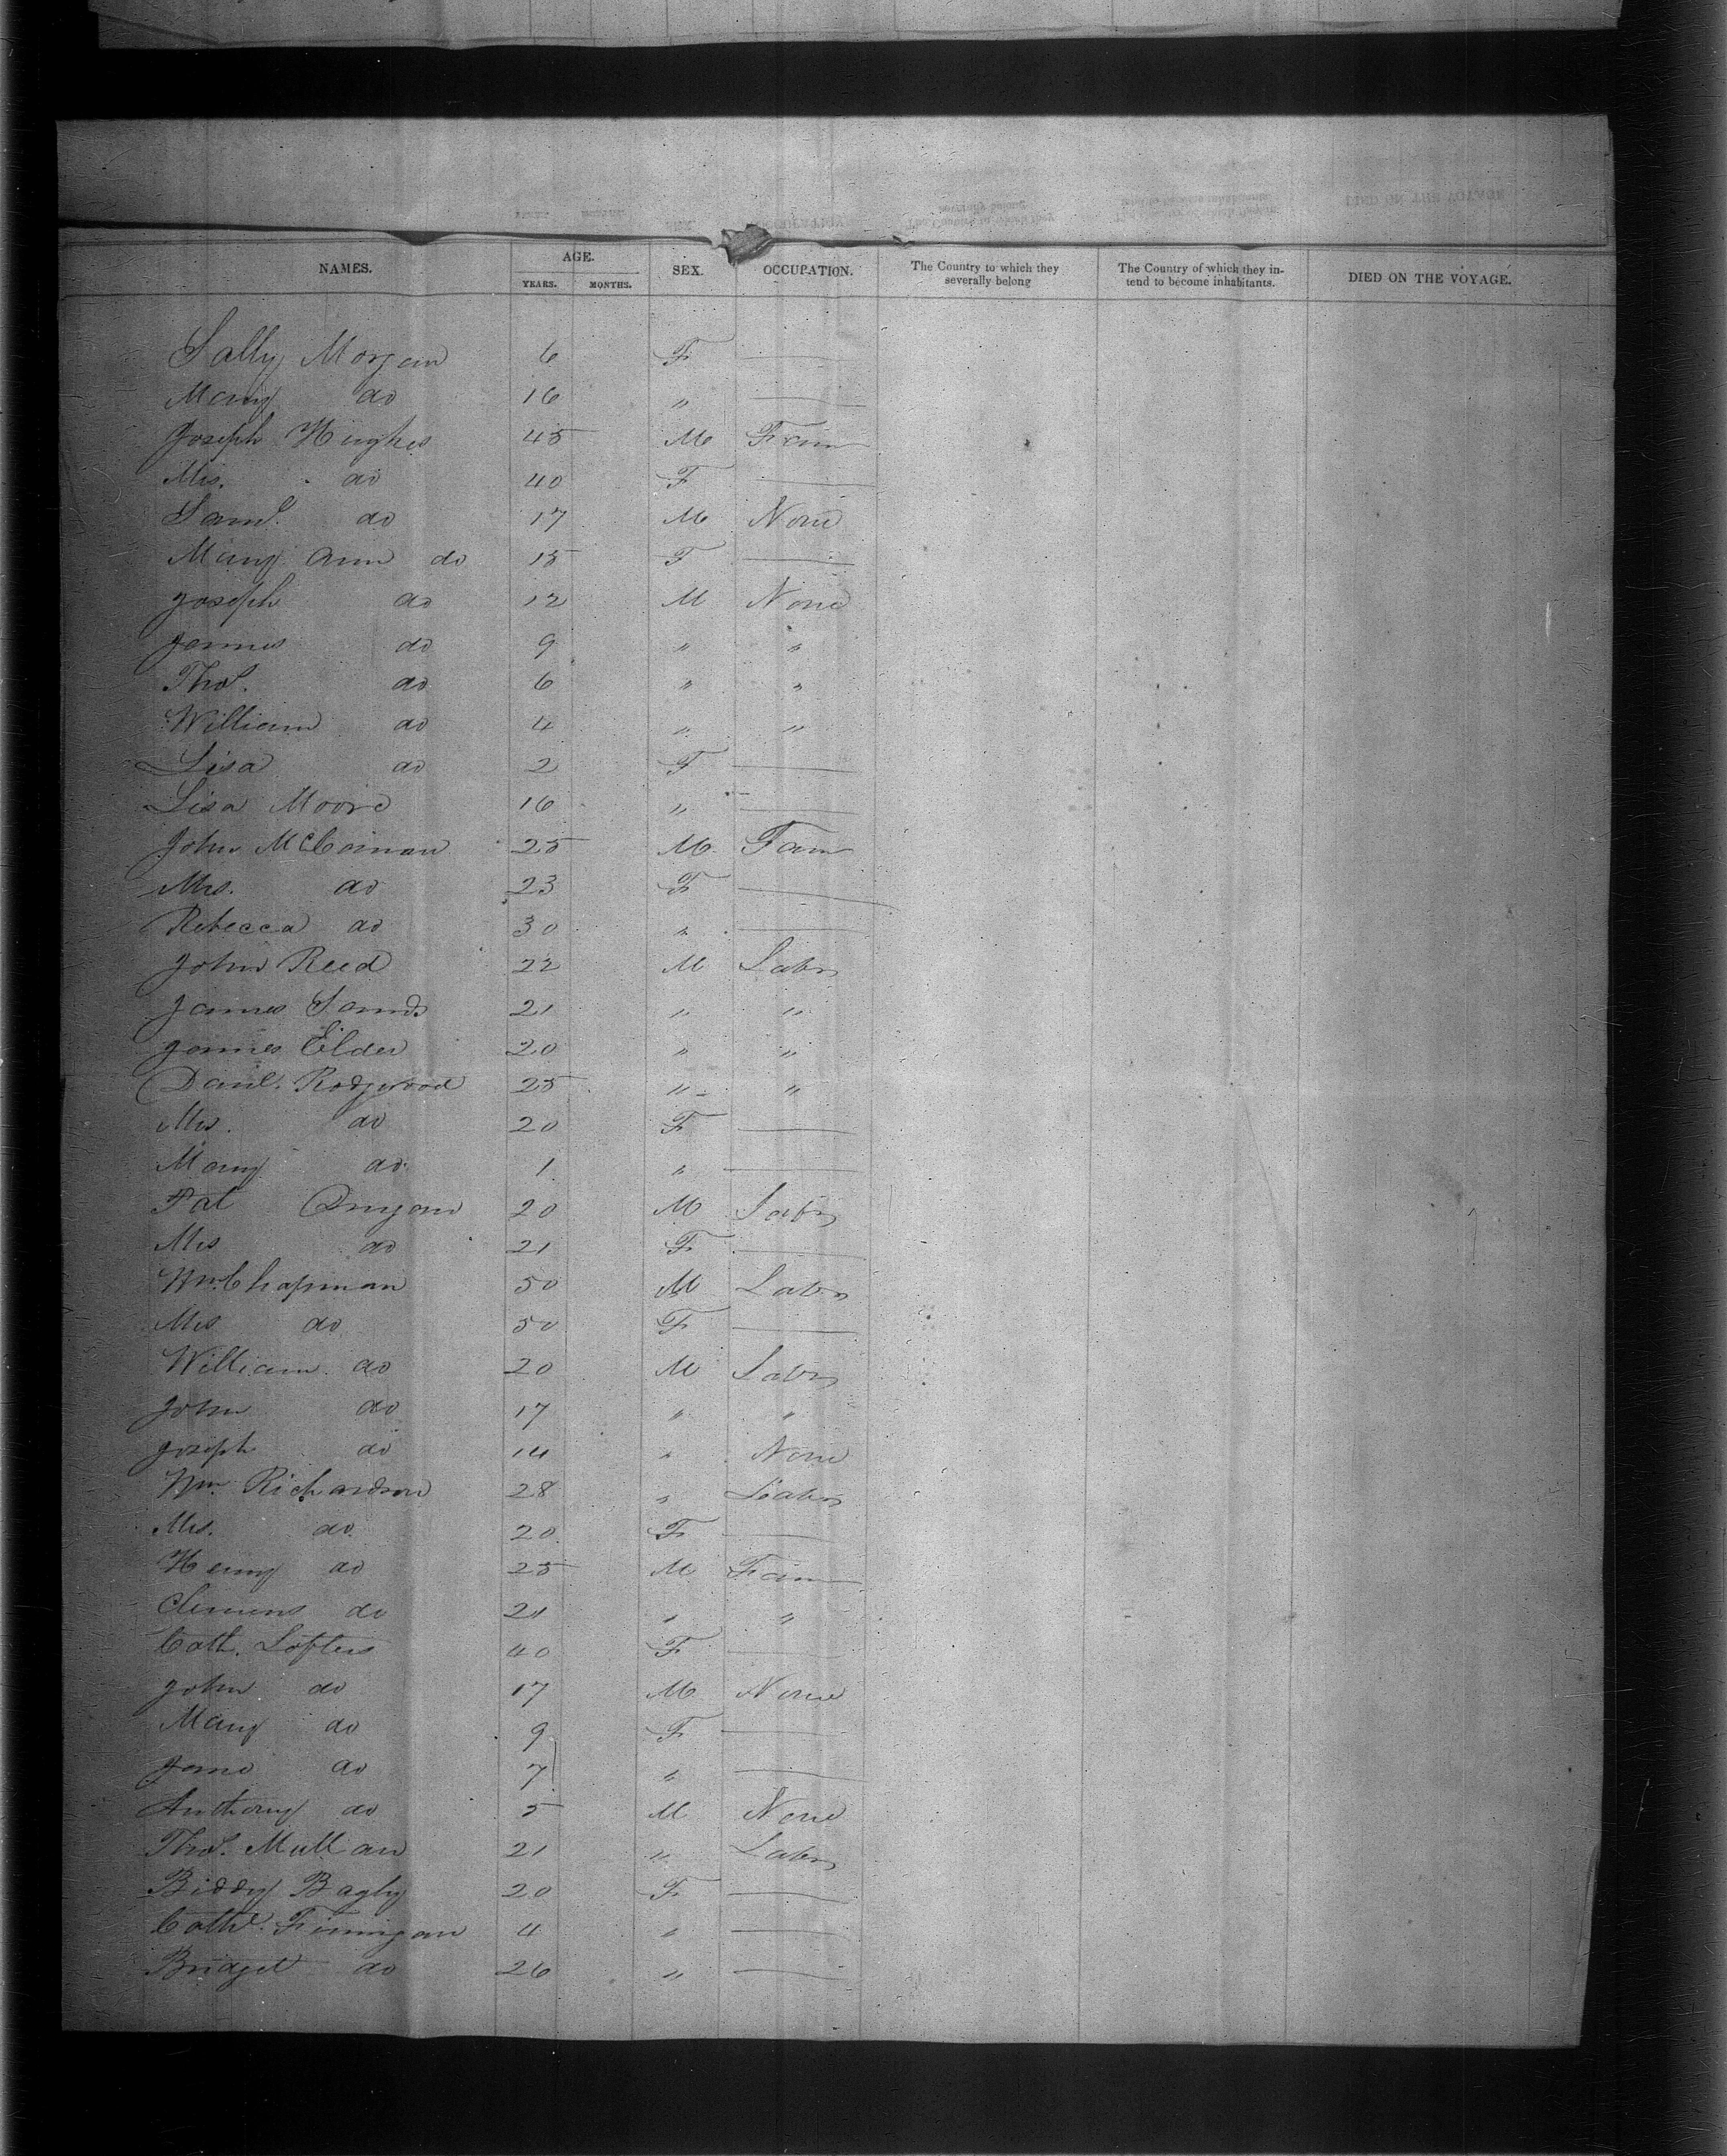 NAMES. AGE. YEARS. MONTHS. SEX. OCCUPATION. The Country to which they severally belong The Country of which they intend to become inhabitants. DIED ON THE VOYAGE.
Sally Morgan 6 F —
Mary do 16 " —
Joseph Hughes 45 M Farm
Mrs. do 40 F —
Saml. do 17 M None
Mary Ann do 15 F —
Joseph do 12 M None
James do 9 " "
Thos. do 6 " "
William do 4 " "
Lisa do 2 F —
Lisa Moore 16 " —
John 25 M Farm
Mrs. do 23 F —
Rebecca do 30 " —
John Reed 22 M Labr
James Sands 21 " "
James Elder 20 " "
Danl. Rodgwood 25 " "
Mrs. do 20 F —
Mary do 1 " —
Pat 20 M Labr
Mrs do 21 F —
Wm. Chapman 50 M Labr
Mrs do 50 F —
William do 20 M Labr
John do 17 " "
Joseph do 14 " None
Wm. Richardson 28 " Labr
Mrs. do 20 F —
Henry do 25 M Farm
Clemens do 21 " "
Cath. Loftus 40 F —
John do 17 M None
Mary do 9 F —
Jane do 7 " —
Anthony do 5 M None
Thos. Mullan 21 " Labr
Biddy Bagly 20 F —
Cathe. Finnigan 4 " —
Bridget do 26 " —